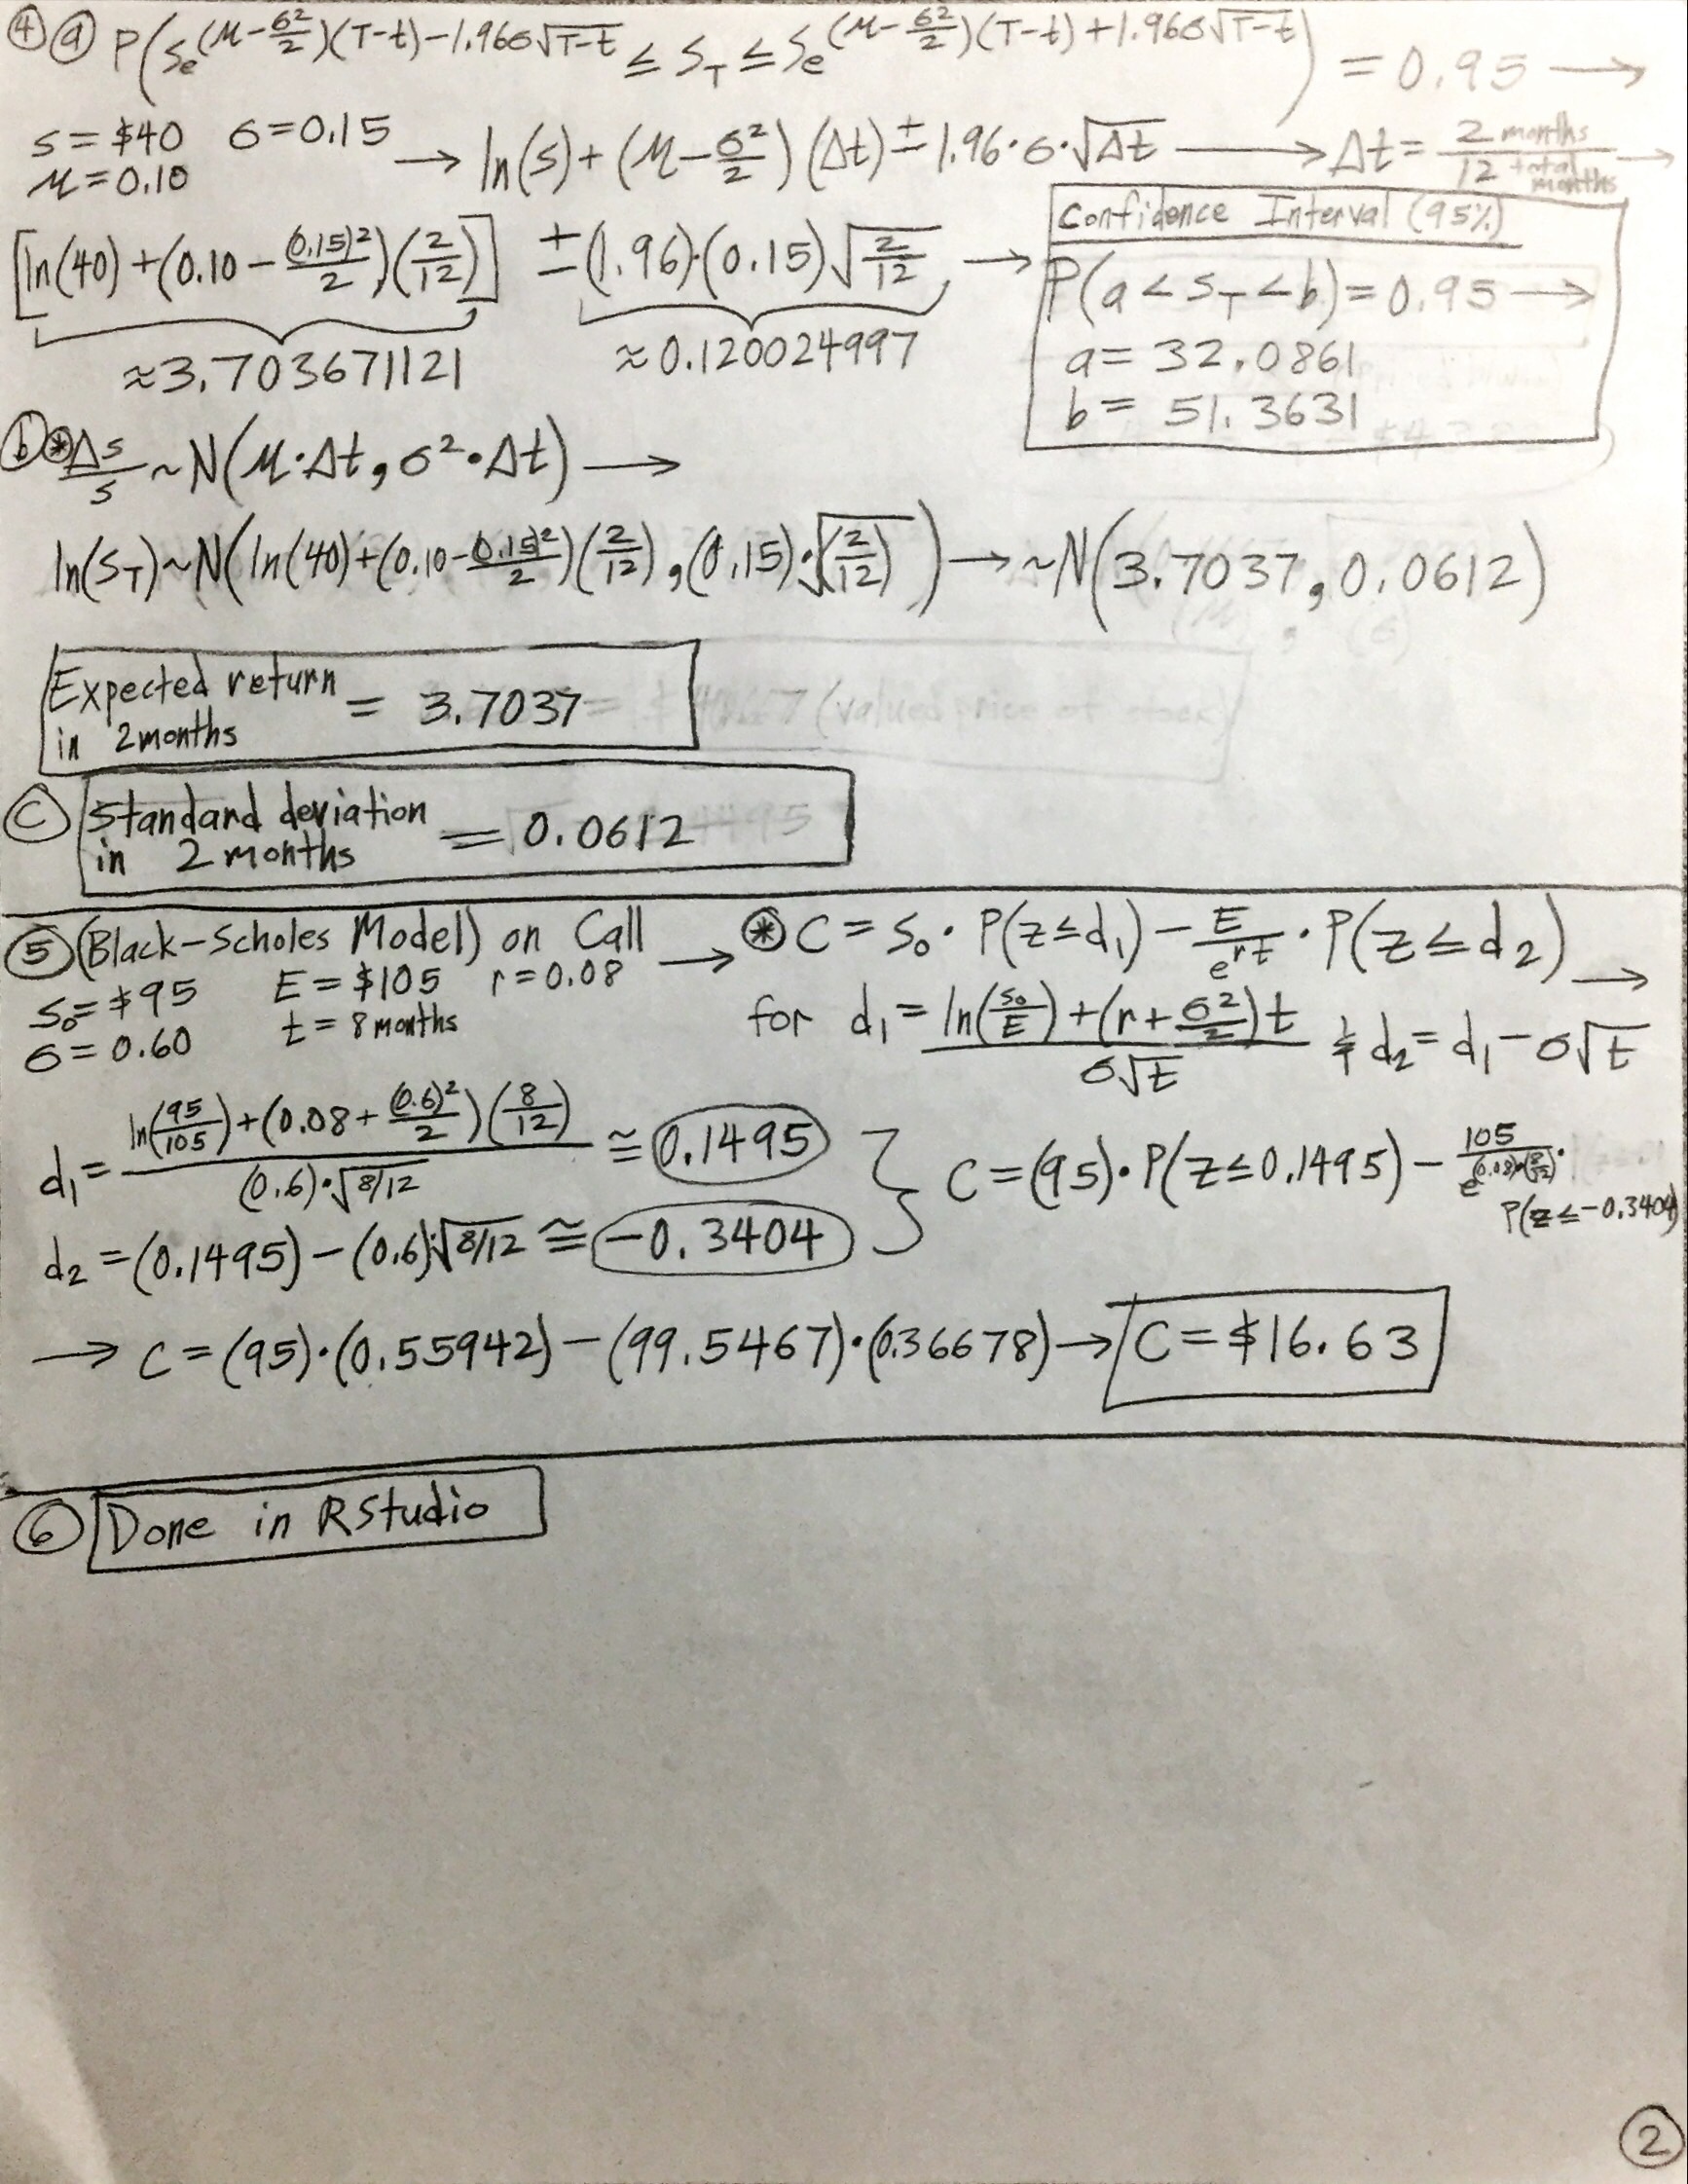 ④ⓐ P(Se^(μ-σ²/2)(T-t)-1.96σ√T-t ≤ S_T ≤ Se^(μ-σ²/2)(T-t)+1.96σ√T-t) = 0.95 →
S=$40 σ=0.15
μ=0.10
→ ln(s)+(μ-σ²/2)(Δt)±1.96·σ·√Δt → Δt = 2 months/12 total months →
[ln(40)+(0.10-(0.15)²/2)(2/12)] ±(1.96)·(0.15)√2/12 →
≈3.703671121 ≈0.120024997
Confidence Interval (95%)
P(a<S_T<b)=0.95 →
a= 32.0861
b= 51.3631
ⓑ ⊛ Δs/s ~N(μ·Δt, σ²·Δt) →
ln(S_T)~N(ln(40)+(0.10-0.15)²/2)(2/12), (0.15)·√(2/12)) → ~N(3.7037, 0.0612)
Expected return in 2 months = 3.7037
ⓒ Standard deviation in 2 months = 0.0612
⑤ (Black-Scholes Model) on Call → ⊛ C = S₀·P(z≤d₁) - E/e^rt · P(z≤d₂) →
S₀=$95 E=$105 r=0.08
σ=0.60 t=8 months
for d₁ = ln(S₀/E)+(r+σ²/2)t / σ√t & d₂=d₁-σ√t
d₁ = ln(95/105)+(0.08+(0.6)²/2)(8/12) / (0.6)·√8/12 ≅ 0.1495
d₂ = (0.1495)-(0.6)·√8/12 ≅ -0.3404
} C=(95)·P(z≤0.1495) - 105/e^(0.08)·(8/12) ·
P(z≤-0.3404)
→ C = (95)·(0.55942)-(99.5467)·(0.36678) → C=$16.63
⑥ Done in RStudio
②